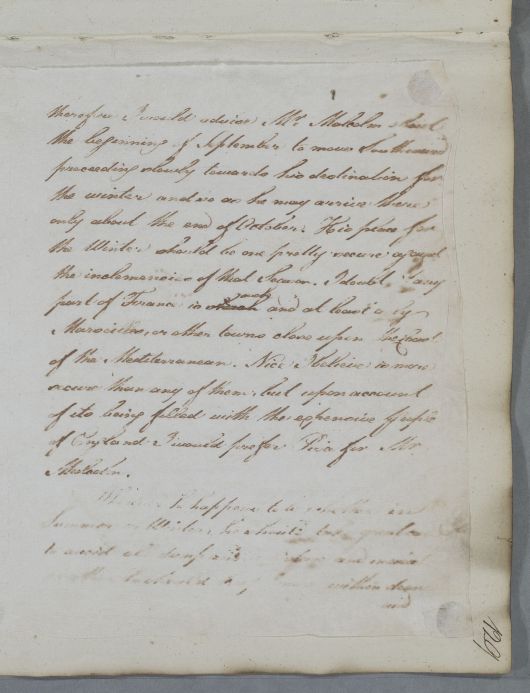 therefore I would advise Mr. Malcolm about
the beginning of September to move Southward
proceeding slowly towards his destination for
the winter and so as he may arrive there
only about the end of October. His place for
the Winter should be one pretty secure against
the inclemencies of that Season. I doubt if any
part of France is such and at least
Marseilles, or other towns close upon the Coast
of the Mediterranean. Nice I believe is more
secure than any of them, but upon account
of its being filled with the expensive people
of England I would prefer Pisa for Mr
Malcolm.
he happens to
Summer or Winter, he
to avoid all damp
should within doors
and
129